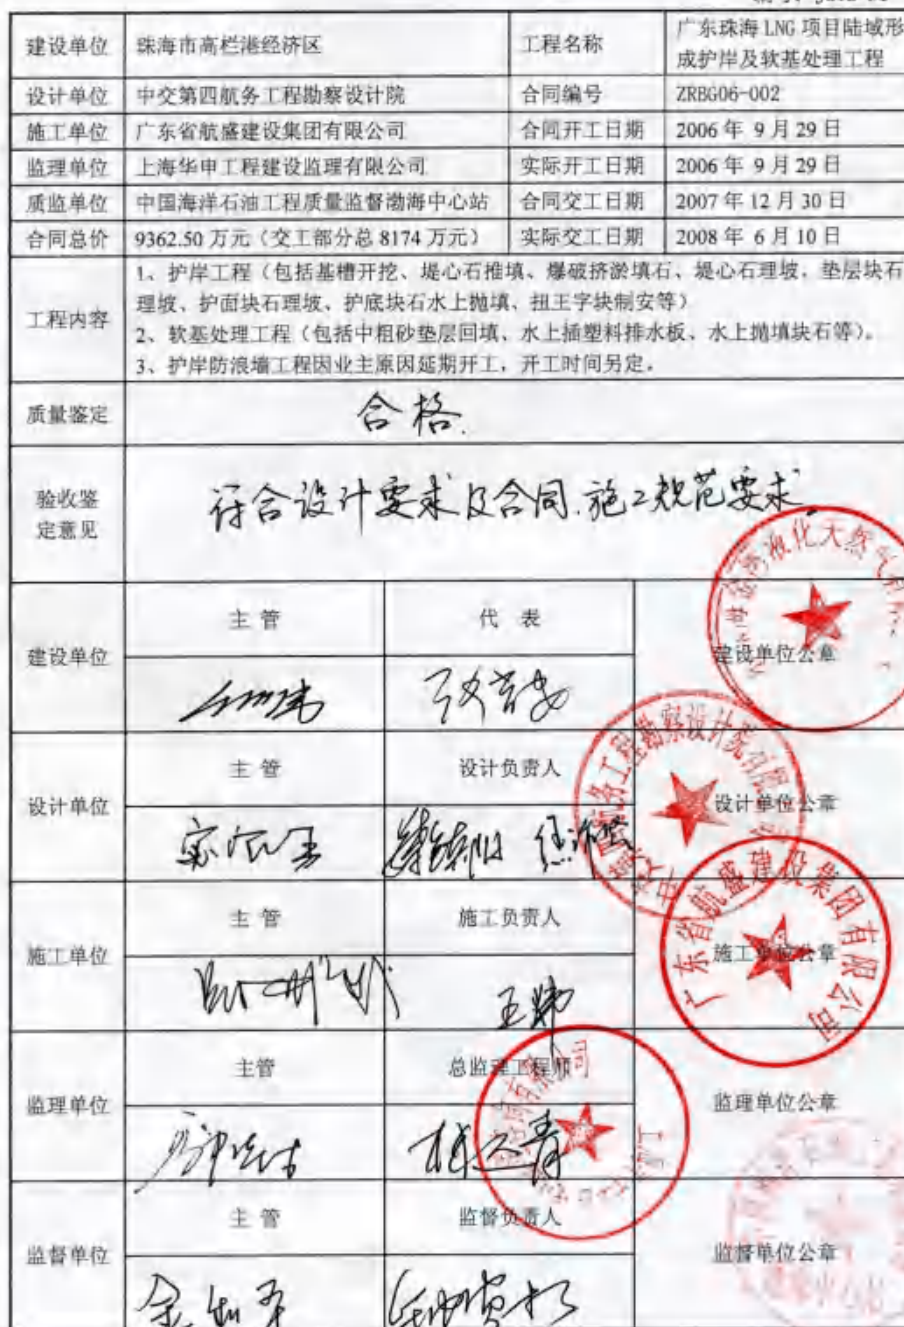 建设单位 珠海市高栏港经济区 工程名称 广东珠海 LNG 项目陆域形
成护岸及软基处理工程
设计单位 中交第四航务工程勘察设计院 合同编号 ZRBG06-002
施工单位 广东省航盛建设集团有限公司 合同开工日期 2006 年 9 月 29 日
监理单位 上海华申工程建设监理有限公司 实际开工日期 2006 年 9 月 29 日
质监单位 中国海洋石油工程质量监督渤海中心站 合同交工日期 2007 年 12 月 30 日
合同总价 9362.50 万元（交工部分总 8174 万元） 实际交工日期 2008 年 6 月 10 日
工程内容
1、护岸工程（包括基槽开挖、堤心石推填、爆破挤淤填石、堤心石理坡、垫层块石
理坡、护面块石理坡、护底块石水上抛填、扭王字块制安等）
2、软基处理工程（包括中粗砂垫层回填、水上插塑料排水板、水上抛填块石等）。
3、护岸防浪墙工程因业主原因延期开工，开工时间另定。
质量鉴定 合格.
验收鉴
定意见
符合设计要求及合同.施工规范要求。
建设单位 主 管 代 表 建设单位公章
设计单位 主 管 设计负责人 设计单位公章
工程勘察设计院有限
施工单位 主 管 施工负责人 施工单位公章
广东省航盛建设集团有限公司
监理单位 主管 总监理工程师 监理单位公章
监督单位 主 管 监督负责人 监督单位公章